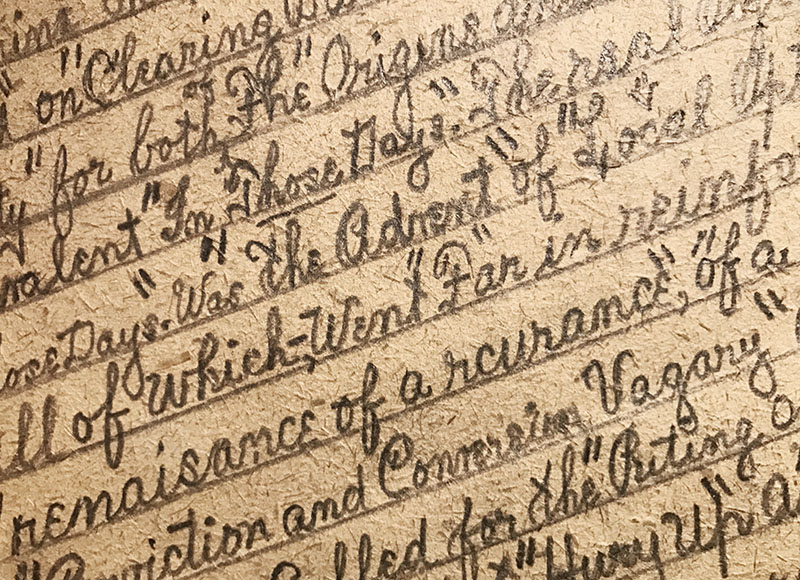 on "Clearing
ty" for both "The" "Origins
valent "In, Those Days." The real
ose Days". Was "The Advent" of "Local
all of which, Went" "Far" in reinfor
renaisance of a rcurance", "of a
viction and Conversion Vagary"
Called for the "Puting
"Hury Up a